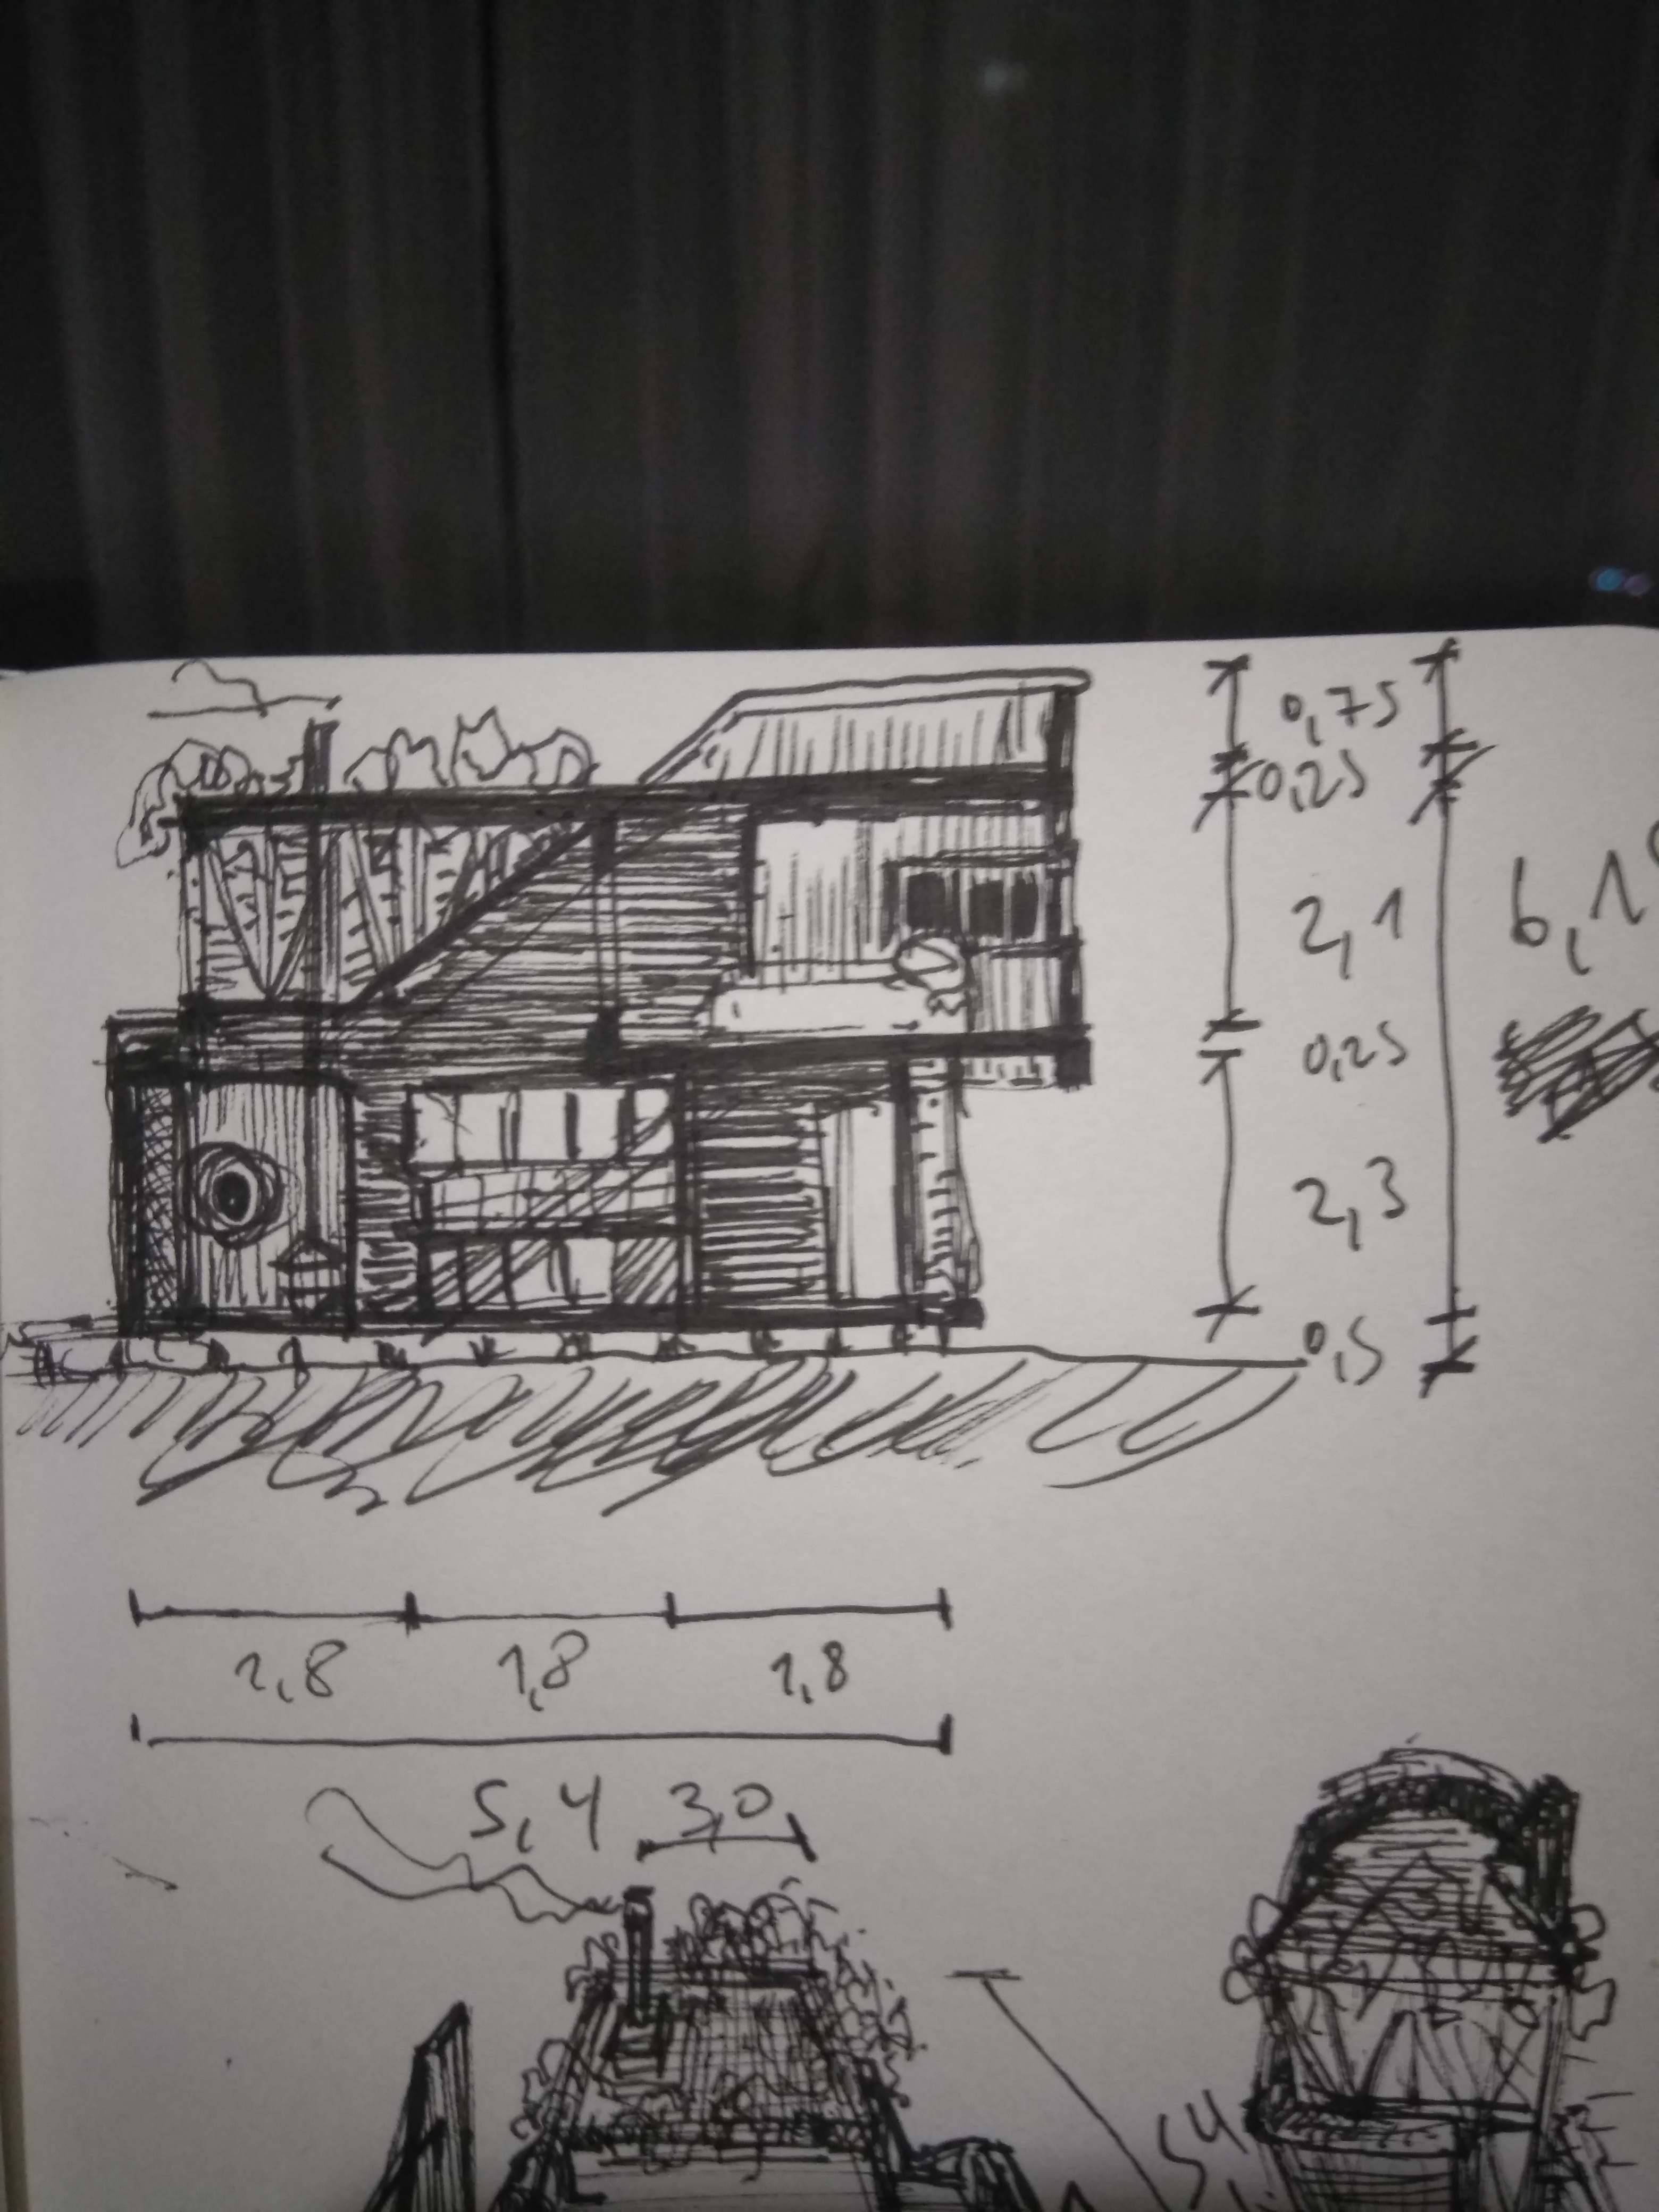 0,75
0,25
2,1
0,25
2,3
0,5
1,8 1,8 1,8
5,4 3,0
5,4